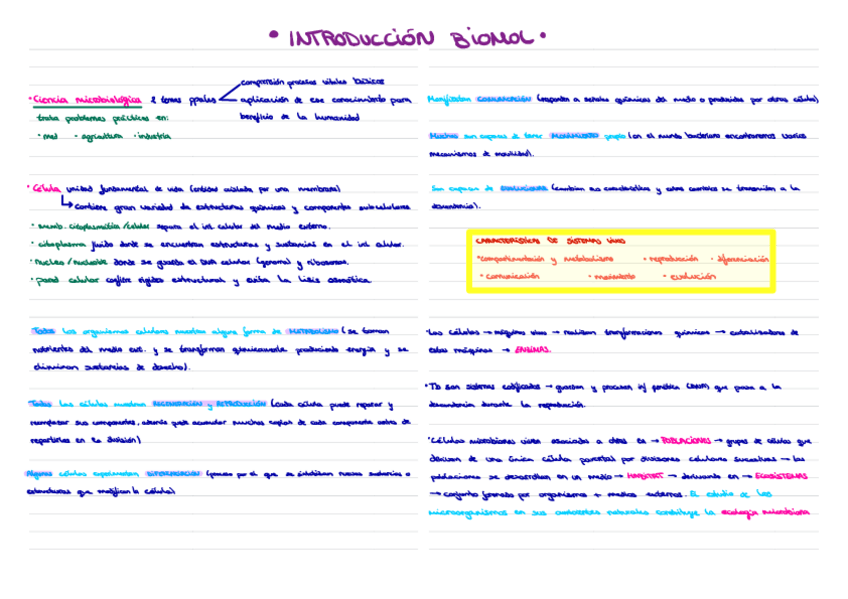 • INTRODUCCIÓN BIOMOL •
comprensión procesos vitales básicos
• Ciencia microbiológica 2 temas ppales aplicación de ese conocimiento para
trata problemas prácticos en: beneficio de la humanidad
• med • agricultura • industria
• Célula unidad fundamental de vida (entidad aislada por una membrana)
contiene gran variedad de estructuras químicas y componentes subcelulares
• memb. citoplasmática/celular separa el int. celular del medio externo.
• citoplasma fluido donde se encuentran estructuras y sustancias en el int. celular.
• Núcleo/nucleoide donde se guarda el DNA celular (genoma) y ribosomas.
• pared celular confiere rigidez estructural y evita la lisis osmótica.
Todos los organismos celulares muestran alguna forma de METABOLISMO (se toman
nutrientes del medio ext. y se transforman químicamente produciendo energía y se
eliminan sustancias de desecho).
Todas las células muestran REGENERACIÓN y REPRODUCCIÓN (cada célula puede reparar y
reemplazar sus componentes, además puede acumular muchas copias de cada componente antes de
repartirlos en la división)
Algunas células experimentan DIFERENCIACIÓN (proceso por el que se sintetizan nuevas sustancias o
estructuras que modifican la célula)
Manifiestan COMUNICACIÓN (responden a señales químicas del medio o producidas por otras células)
Muchas son capaces de tener MOVIMIENTO propio (en el mundo bacteriano encontramos varios
mecanismos de movilidad).
Son capaces de EVOLUCIONAR (cambian sus características y estos cambios se transmiten a la
descendencia).
CARACTERÍSTICAS DE SISTEMAS VIVOS
• compartimentación y metabolismo • reproducción • diferenciación
• comunicación • movimiento • evolución
• Las células → máquinas vivas → realizan transformaciones químicas → catalizadores de
estas máquinas → ENZIMAS.
• Tb son sistemas codificados → guardan y procesan inf genética (DNA) que pasa a la
descendencia durante la reproducción.
• Células microbianas viven asociadas a otras en → POBLACIONES → grupos de células que
derivan de una única célula parental por divisiones celulares sucesivas → las
poblaciones se desarrollan en un medio → HÁBITAT → derivando en → ECOSISTEMAS
→ conjunto formado por organismos + medios externos. El estudio de los
microorganismos en sus ambientes naturales constituye la ecología microbiana